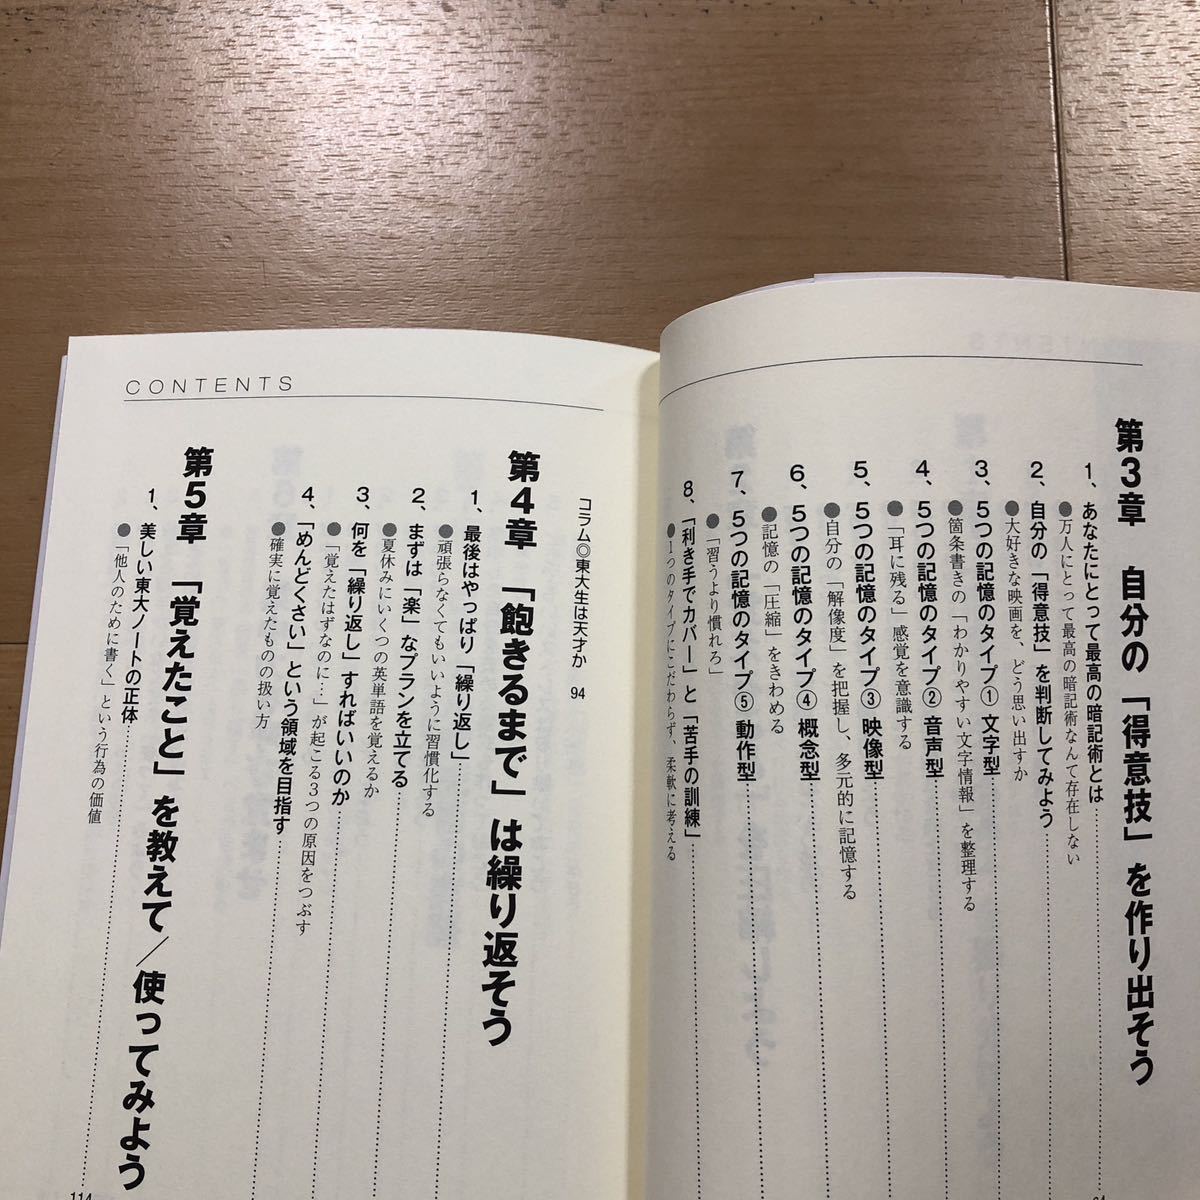 第3章　自分の「得意技」を作り出そう
1、あなたにとって最高の暗記術とは
●万人にとって最高の暗記術なんて存在しない
2、自分の「得意技」を判断してみよう
●大好きな映画を、どう思い出すか
3、5つの記憶のタイプ① 文字型
●箇条書きの「わかりやすい文字情報」を整理する
4、5つの記憶のタイプ② 音声型
●「耳に残る」感覚を意識する
5、5つの記憶のタイプ③ 映像型
●自分の「解像度」を把握し、多元的に記憶する
6、5つの記憶のタイプ④ 概念型
●記憶の「圧縮」をきわめる
7、5つの記憶のタイプ⑤ 動作型
●「習うより慣れろ」
8、「利き手でカバー」と「苦手の訓練」
●1つのタイプにこだわらず、柔軟に考える
CONTENTS
コラム◎東大生は天才か　94
第4章　「飽きるまで」は繰り返そう
1、最後はやっぱり「繰り返し」
●頑張らなくてもいいように習慣化する
2、まずは「楽」なプランを立てる
●夏休みにいくつの英単語を覚えるか
3、何を「繰り返し」すればいいのか
●「覚えたはずなのに…」が起こる3つの原因をつぶす
4、「めんどくさい」という領域を目指す
●確実に覚えたものの扱い方
第5章　「覚えたこと」を教えて／使ってみよう
1、美しい東大ノートの正体
●「他人のために書く」という行為の価値
114